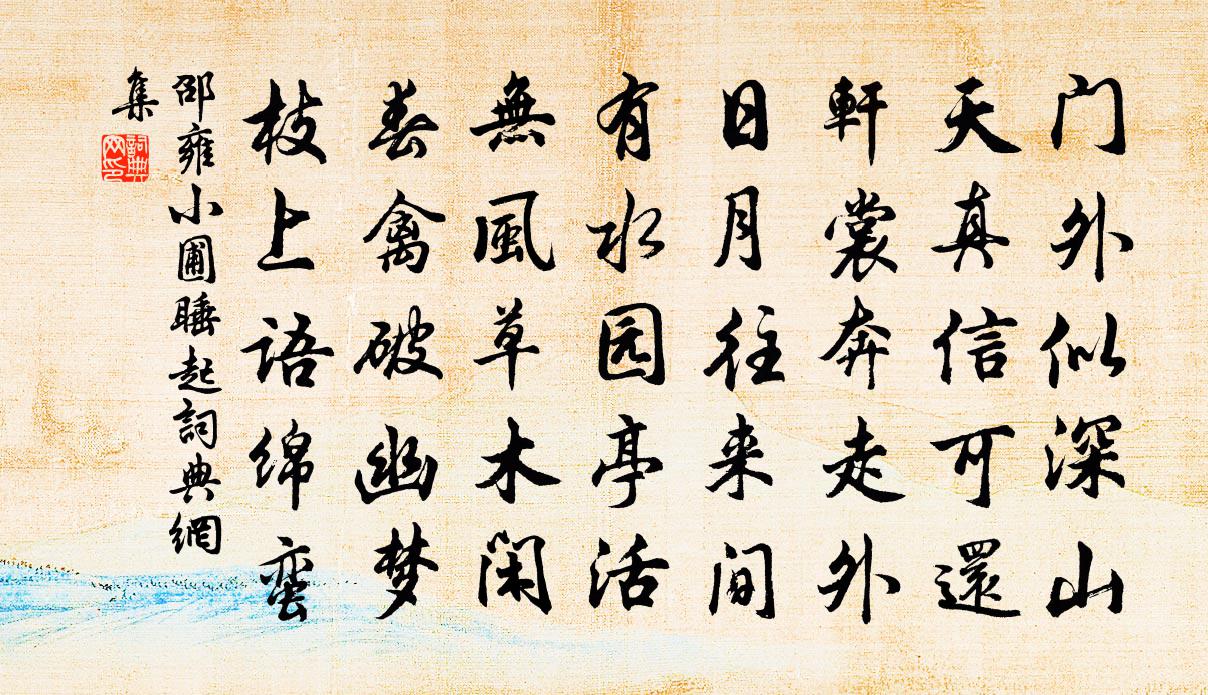 门外似深山
天真信可還
軒裳奔走外
日月往来间
有水园亭活
無風草木闲
春禽破幽梦
枝上语绵蛮
邵雍小圃睡起詞典網
集
詞典
网印